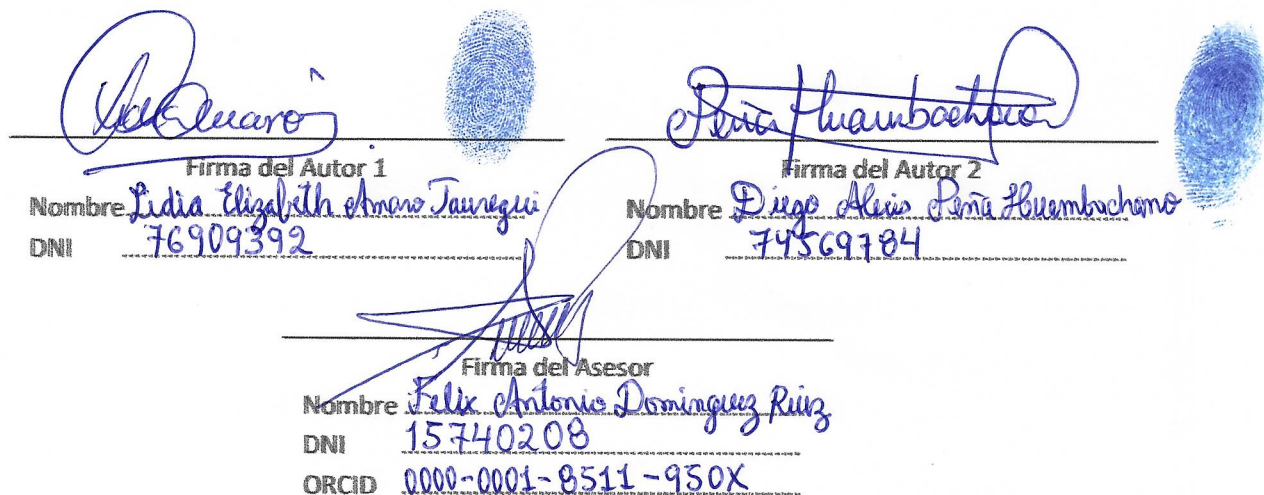 Firma del Autor 1
Nombre Lidia Elizabeth Amaro Jauregui
DNI 76909392
Firma del Autor 2
Nombre Diego Alexis Peña Huambachano
DNI 74569784
Firma del Asesor
Nombre Felix Antonio Dominguez Ruiz
DNI 15740208
ORCID 0000-0001-8511-950X